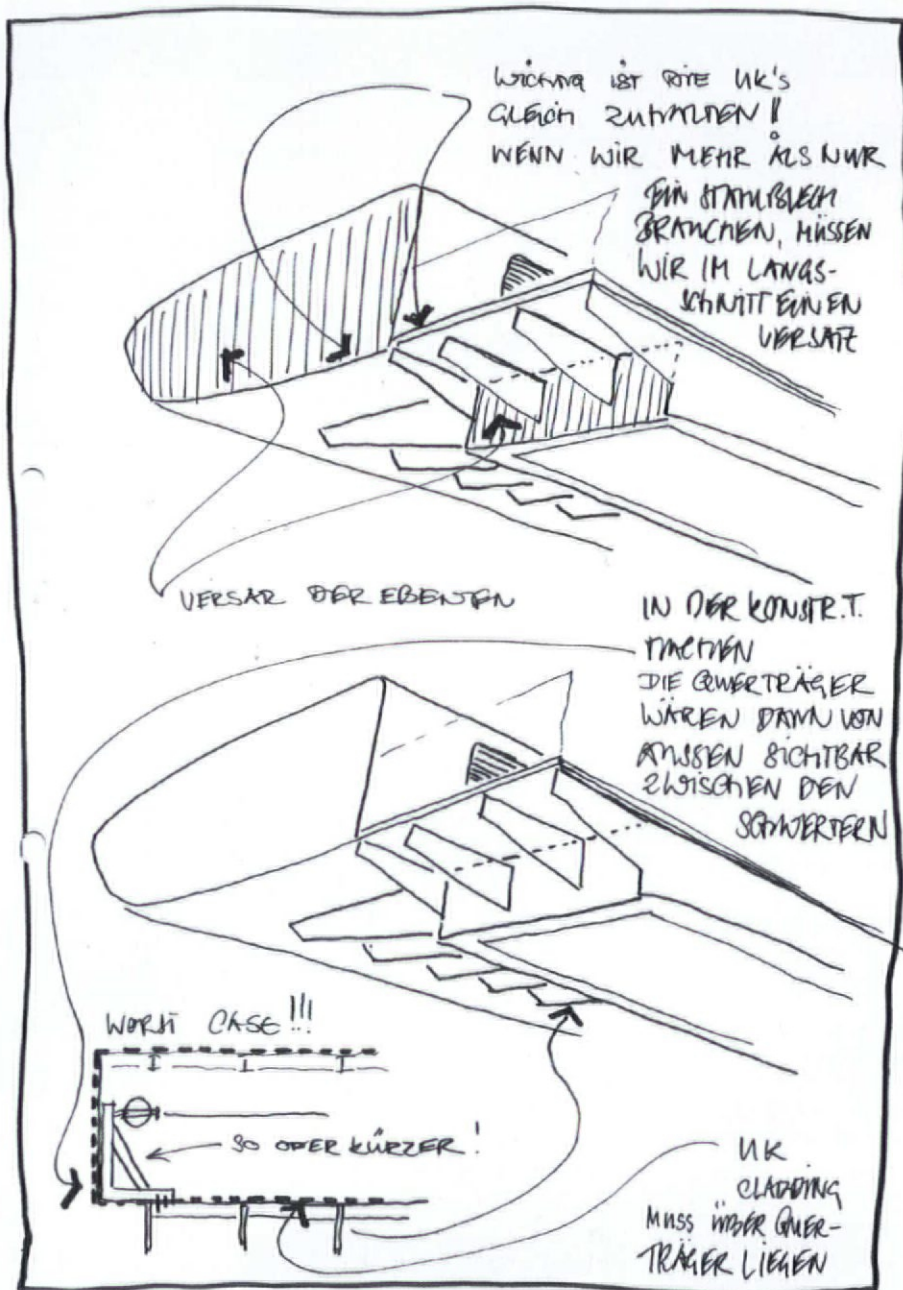 WICHTIG IST DIE UK's
GLEICH ZUHALTEN!
WENN WIR MEHR ALS NUR
EIN STAHLBLECH
BRAUCHEN, MÜSSEN
WIR IM LANGS-
SCHNITT EINEN
VERSATZ
VERSAR DER EBENEN
IN DER KONSTR.T.
MACHEN
DIE QUERTRÄGER
WÄREN DANN VON
AUSSEN SICHTBAR
ZWISCHEN DEN
SCHWERTERN
WORST CASE!!!
SO ODER KÜRZER!
UK
CLADDING
MUSS ÜBER QUER-
TRÄGER LIEGEN